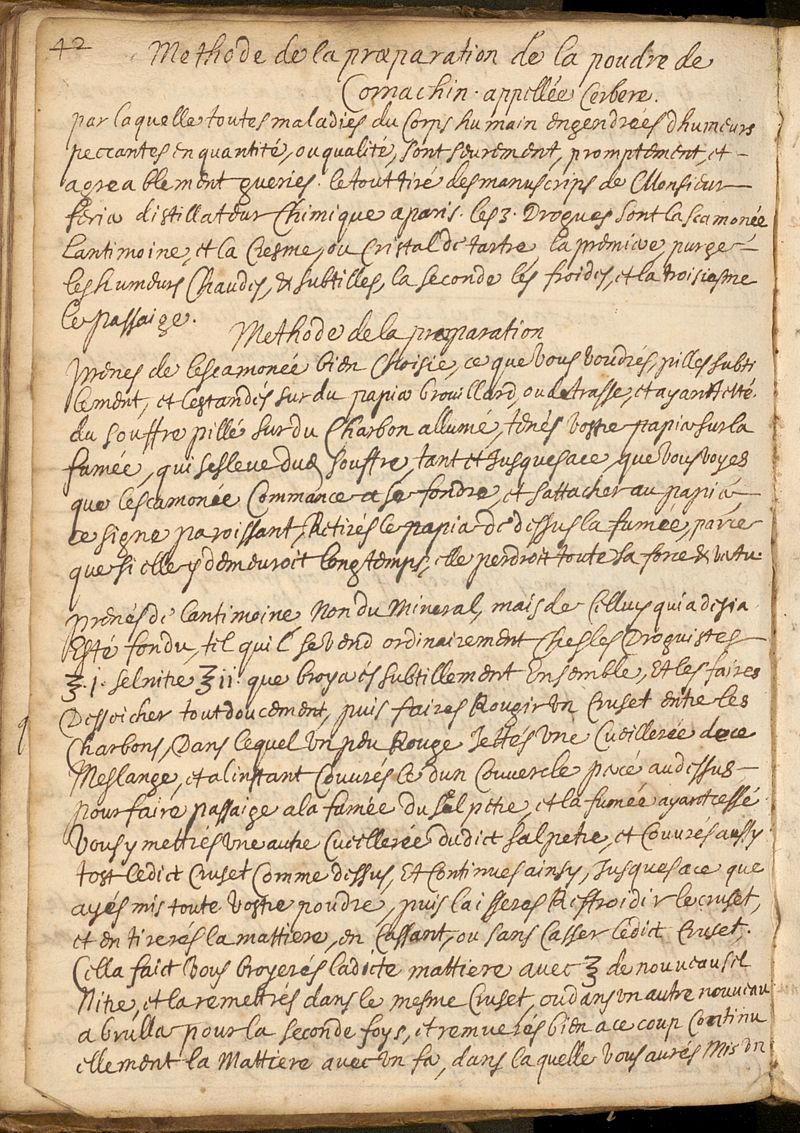 42
Methode de la præparation de la poudre de
Cornachin. appellée Cerbere.
par laquelle toutes maladies du Corps humain engendrees dhumeurs
peccantes en quantité, ou qualité, sont seurement, promptement, et -
agreablement gueries. le tout tiré des manuscrips de Monsieur
feria distillateur Chimique a paris. les 3. Drogues sont la scamonée
Lantimoine, et la Cresme, ou Cristal de tartre, la premiere purge
les humeurs Chaudes, & subtilles, la seconde les froides, et la troisiesme
le passaige.
Methode de la præparation
prenes de lescamonée bien Choisie, ce que vous voudrés, pilles subti
lement, et lestandés sur du papier brouillard, ou de trasse, et ayant jetté
du souffre pillé sur du Charbon allumé, tenés vostre papier sur la
fumée, qui sesleve dud souffre, tant et Jusques ace, que vous voyes
que lescamonée Commance a se fondre, et sattacher au papié
ce signe paroissant, Retirés le papier de dessus la fumée, parce
que si elle y demeuroit longtemps, elle perdroit toute sa force & vertu.
prenés de lantimoine Non du Mineral, mais de Celluy qui a desia
Esté fondu, tel quil se vend ordinairement Ches les Droguistes
℥.j. sel nitre ℥ii. que broyarés subtillement Ensemble, Et les faires
Desseicher tout doucement, puis faires Rougir Un Cruset entre les
Charbons, Dans lequel Un peu Rouge Jettes Une Cueillerée de ce
Meslange, et a linstant Couvrés le dun Couvercle percé au dessus
pour faire passaige a la fumée du salpetre, et la fumée ayant cessé
Vous y mettrés Une autre Cueillerée dudict salpetre, et Couvrés aussy
tost ledict Cruset Comme dessus, Et Continues ainsy, Jusques ace que
ayés mis toute vostre poudre, puis laisseres Reffroidir le cruset,
et en tirerés la mattiere, en Cassant, ou sans Casser ledict Cruset.
Cella faict Vous broyerés ladicte mattiere avec ℥ de nouveau sel
Nitre, et la remettrés dans le mesme Cruset, ou dans un autre nouveau
a bruller pour la seconde foys, et remuerés bien a ce coup Continu
ellement la Mattiere avec Un fer, dans laquelle vous aurés Mis Un